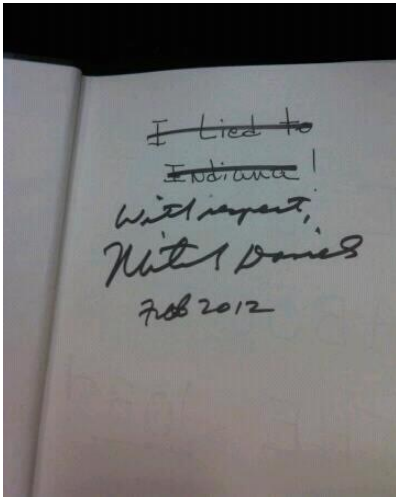 I Lied to
Indiana!
With respect,
Mitch Daniels
Feb 2012